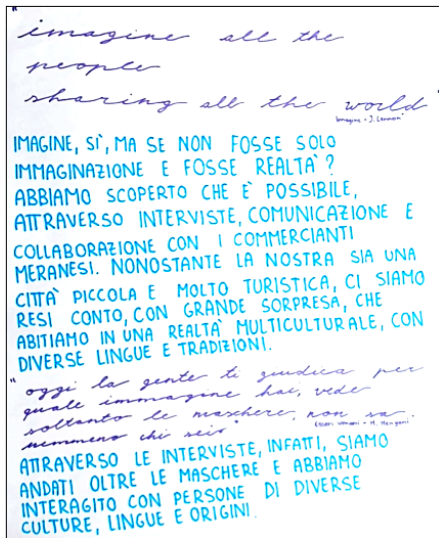 "imagine all the
people
sharing all the world"
Imagine - J. Lennon
IMAGINE, SÌ, MA SE NON FOSSE SOLO
IMMAGINAZIONE E FOSSE REALTÀ?
ABBIAMO SCOPERTO CHE È POSSIBILE,
ATTRAVERSO INTERVISTE, COMUNICAZIONE E
COLLABORAZIONE CON I COMMERCIANTI
MERANESI. NONOSTANTE LA NOSTRA SIA UNA
CITTÀ PICCOLA E MOLTO TURISTICA, CI SIAMO
RESI CONTO, CON GRANDE SORPRESA, CHE
ABITIAMO IN UNA REALTÀ MULTICULTURALE, CON
DIVERSE LINGUE E TRADIZIONI.
"oggi la gente ti giudica per
quale immagine hai, vede
soltanto le maschere, non sa
nemmeno chi sei"
Esseri umani - M. Mengoni
ATTRAVERSO LE INTERVISTE, INFATTI, SIAMO
ANDATI OLTRE LE MASCHERE E ABBIAMO
INTERAGITO CON PERSONE DI DIVERSE
CULTURE, LINGUE E ORIGINI.